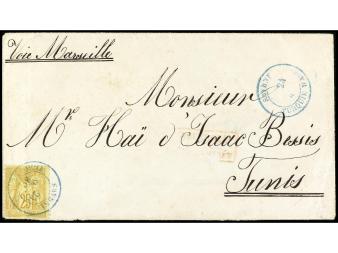 Voie Marseille
Monsieur
Mr. Haï d'Isaac Bessis
Tunis
25